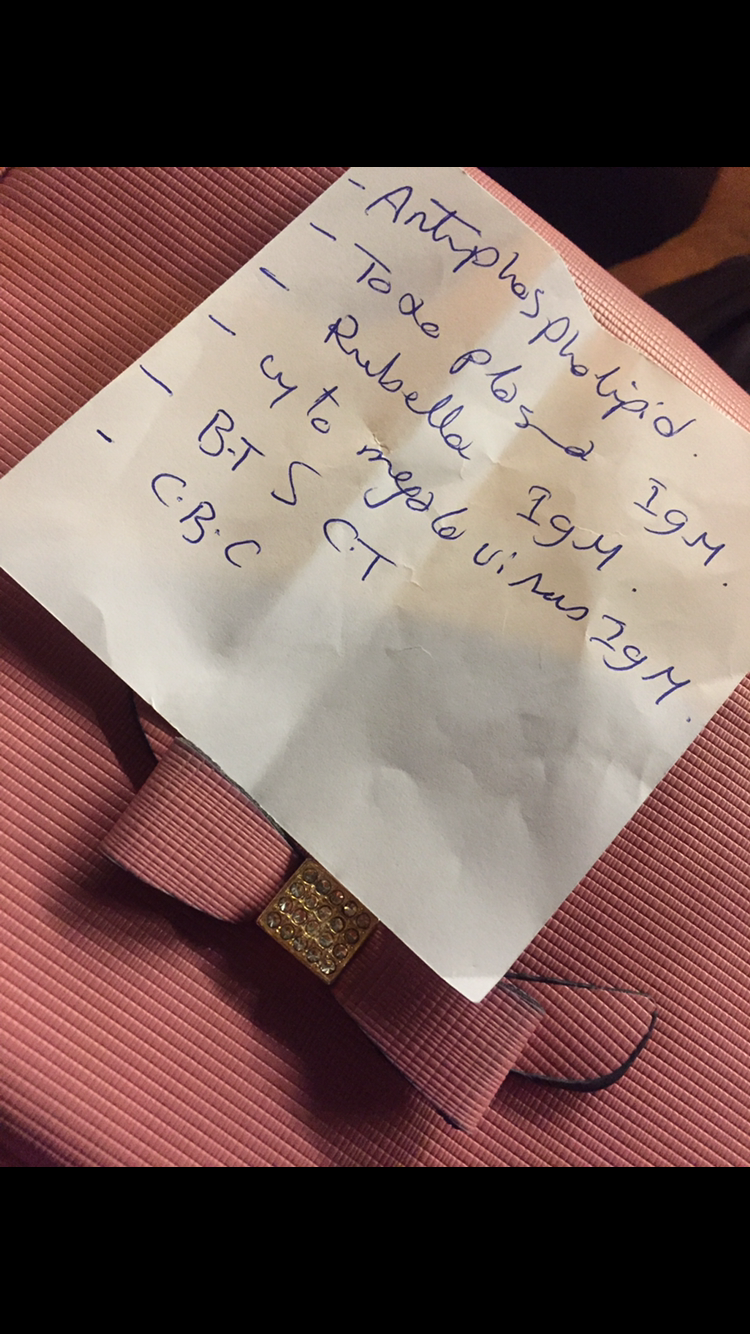 - Antiphospholipid.
- Toxo plasma IgM.
- Rubella IgM.
- cyto megalo virus IgM.
- B.T S C.T
- C.B.C